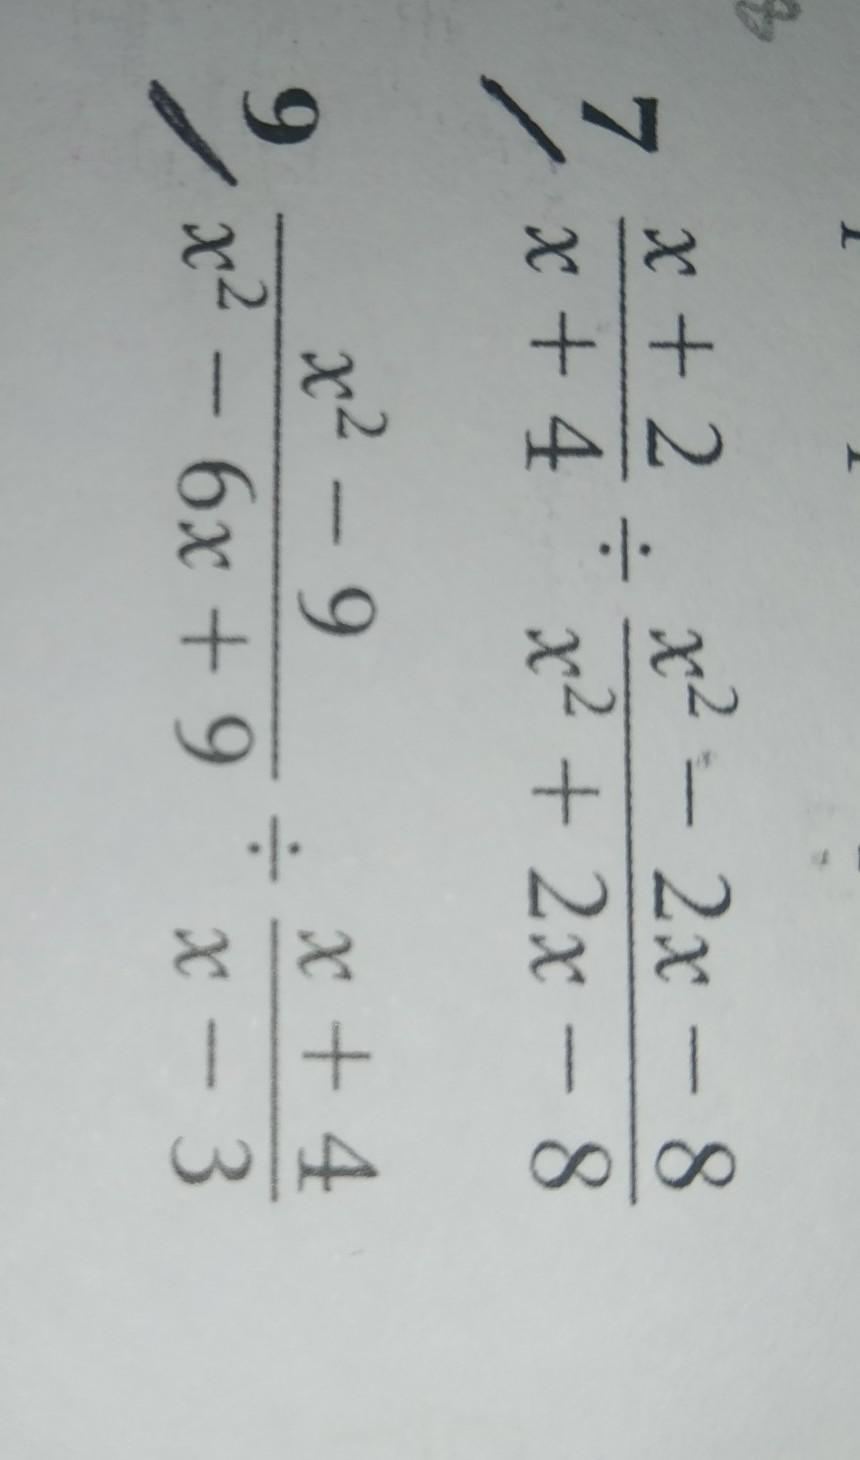 7 \frac{x + 2}{x + 4} ÷ \frac{x² − 2x − 8}{x² + 2x − 8}
9 \frac{x² − 9}{x² − 6x + 9} ÷ \frac{x + 4}{x − 3}